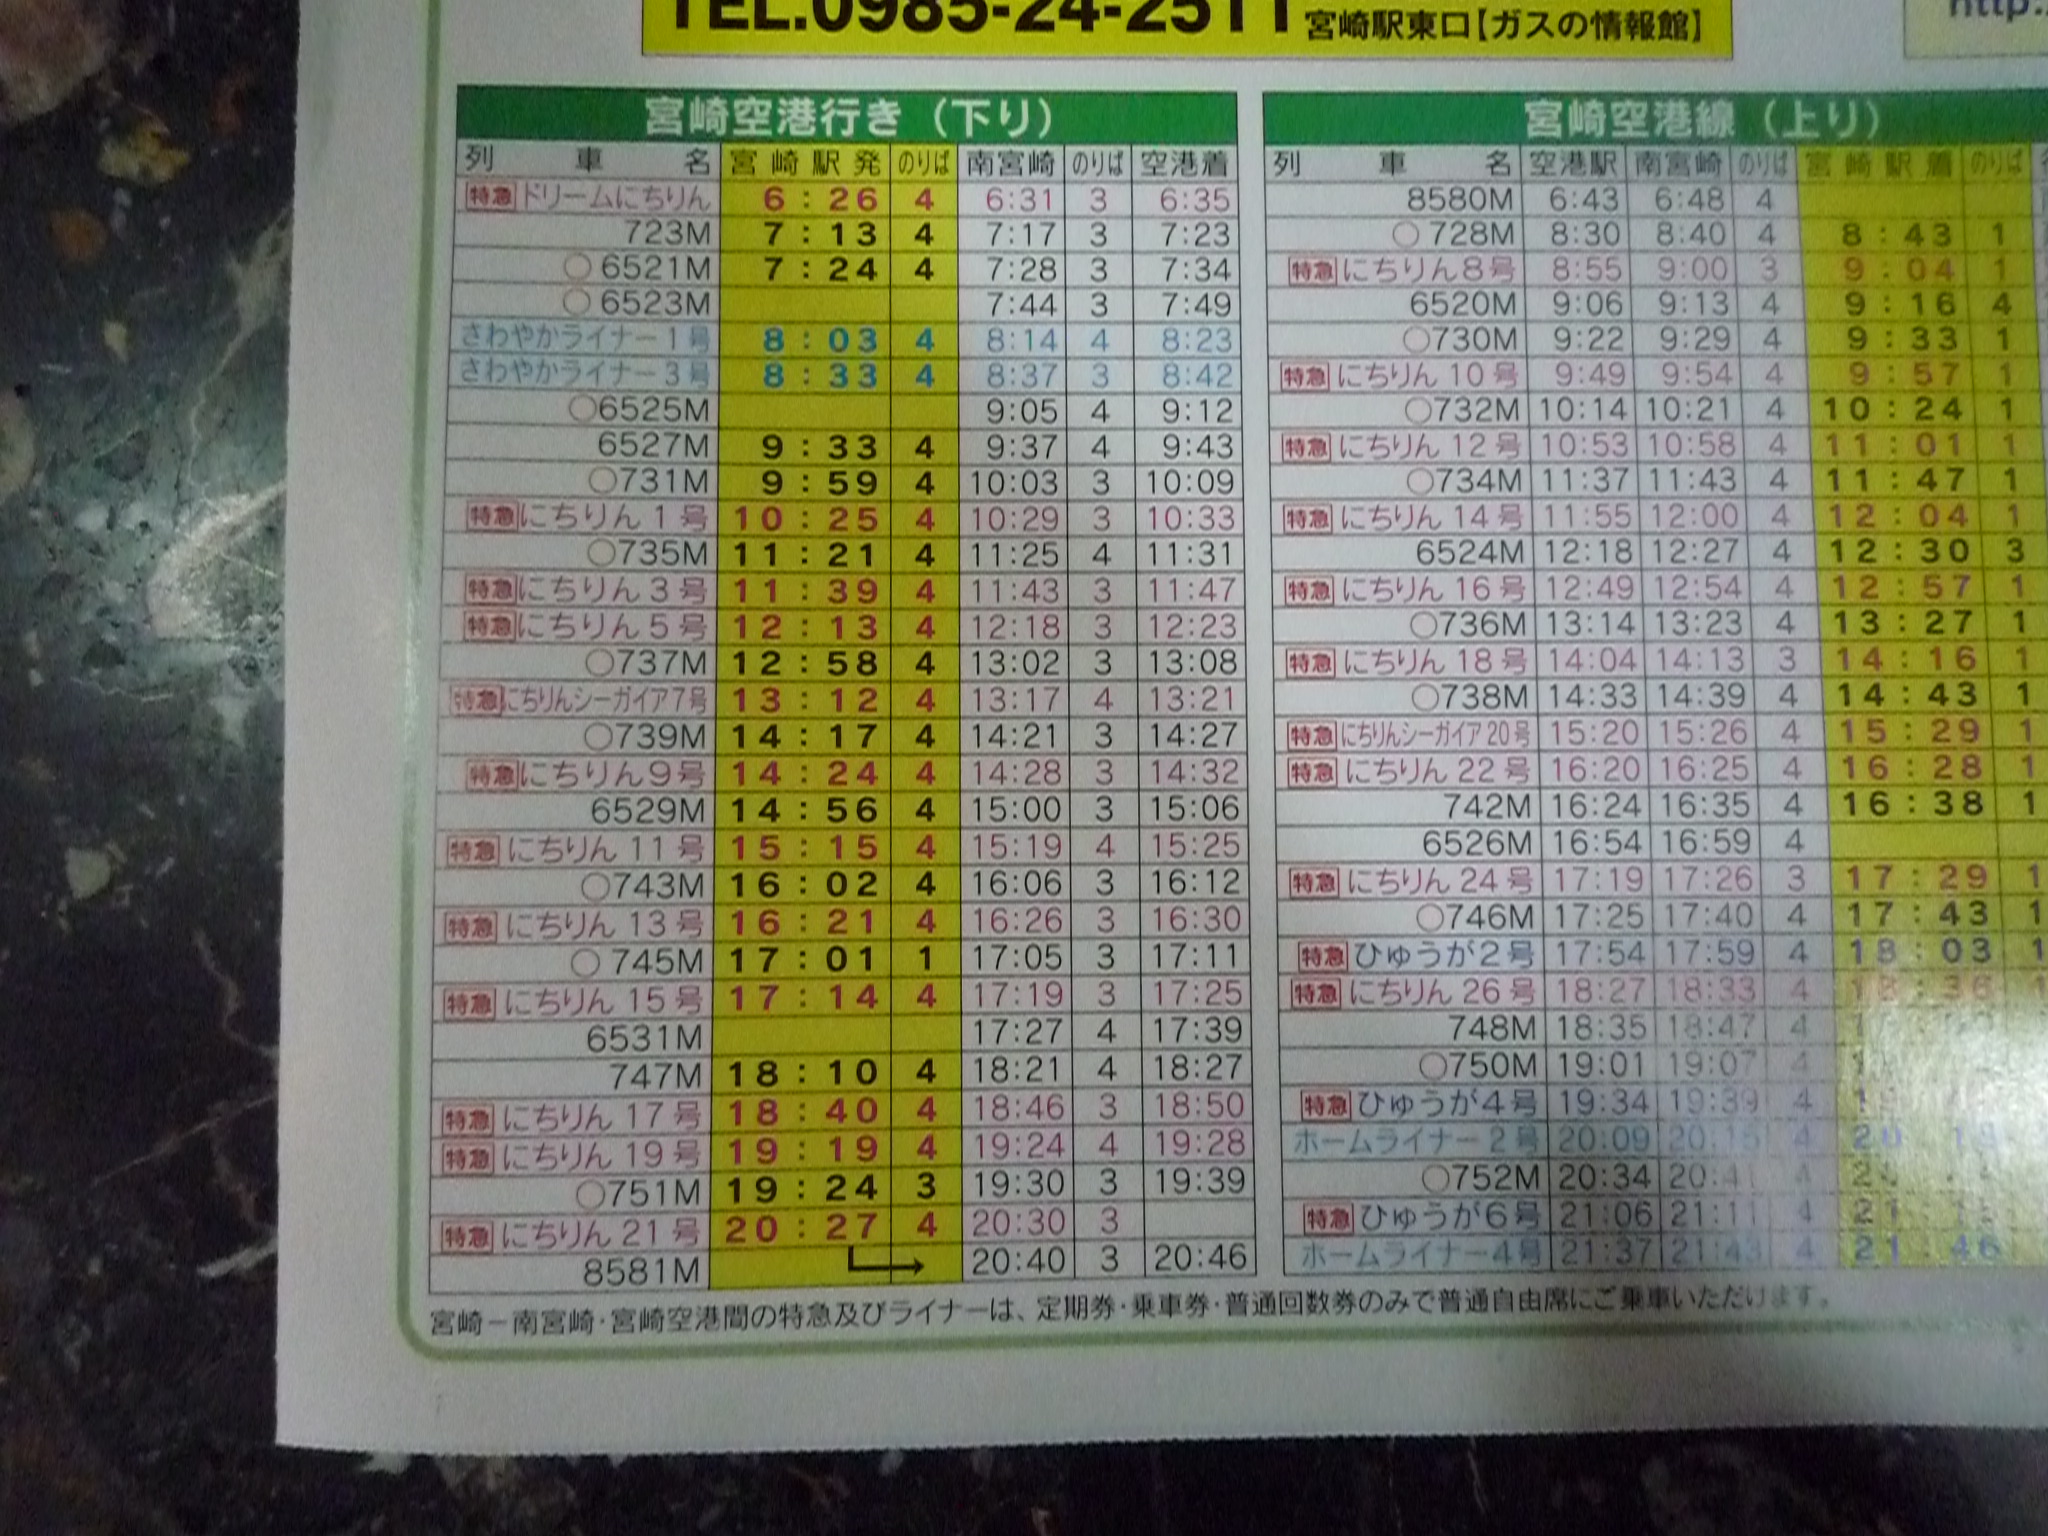 TEL.0985-24-2511 宮崎駅東口【ガスの情報館】
http:
宮崎空港行き（下り）
列車名 宮崎駅発 のりば 南宮崎 のりば 空港着
特急 ドリームにちりん 6:26 4 6:31 3 6:35
723M 7:13 4 7:17 3 7:23
○6521M 7:24 4 7:28 3 7:34
○6523M 7:44 3 7:49
さわやかライナー1号 8:03 4 8:14 4 8:23
さわやかライナー3号 8:33 4 8:37 3 8:42
○6525M 9:05 4 9:12
6527M 9:33 4 9:37 4 9:43
○731M 9:59 4 10:03 3 10:09
特急 にちりん1号 10:25 4 10:29 3 10:33
○735M 11:21 4 11:25 4 11:31
特急 にちりん3号 11:39 4 11:43 3 11:47
特急 にちりん5号 12:13 4 12:18 3 12:23
○737M 12:58 4 13:02 3 13:08
特急 にちりんシーガイア7号 13:12 4 13:17 4 13:21
○739M 14:17 4 14:21 3 14:27
特急 にちりん9号 14:24 4 14:28 3 14:32
6529M 14:56 4 15:00 3 15:06
特急 にちりん11号 15:15 4 15:19 4 15:25
○743M 16:02 4 16:06 3 16:12
特急 にちりん13号 16:21 4 16:26 3 16:30
○745M 17:01 1 17:05 3 17:11
特急 にちりん15号 17:14 4 17:19 3 17:25
6531M 17:27 4 17:39
747M 18:10 4 18:21 4 18:27
特急 にちりん17号 18:40 4 18:46 3 18:50
特急 にちりん19号 19:19 4 19:24 4 19:28
○751M 19:24 3 19:30 3 19:39
特急 にちりん21号 20:27 4 20:30 3
8581M 20:40 3 20:46
宮崎空港線（上り）
列車名 空港駅 南宮崎 のりば 宮崎駅着 のりば
8580M 6:43 6:48 4
○728M 8:30 8:40 4 8:43 1
特急 にちりん8号 8:55 9:00 3 9:04 1
6520M 9:06 9:13 4 9:16 4
○730M 9:22 9:29 4 9:33 1
特急 にちりん10号 9:49 9:54 4 9:57 1
○732M 10:14 10:21 4 10:24 1
特急 にちりん12号 10:53 10:58 4 11:01 1
○734M 11:37 11:43 4 11:47 1
特急 にちりん14号 11:55 12:00 4 12:04 1
6524M 12:18 12:27 4 12:30 3
特急 にちりん16号 12:49 12:54 4 12:57 1
○736M 13:14 13:23 4 13:27 1
特急 にちりん18号 14:04 14:13 3 14:16 1
○738M 14:33 14:39 4 14:43 1
特急 にちりんシーガイア20号 15:20 15:26 4 15:29 1
特急 にちりん22号 16:20 16:25 4 16:28 1
742M 16:24 16:35 4 16:38 1
6526M 16:54 16:59 4
特急 にちりん24号 17:19 17:26 3 17:29 1
○746M 17:25 17:40 4 17:43 1
特急 ひゅうが2号 17:54 17:59 4 18:03 1
特急 にちりん26号 18:27 18:33 4 18:36 1
748M 18:35 18:47 4
○750M 19:01 19:07 4
特急 ひゅうが4号 19:34 19:39 4
ホームライナー2号 20:09 20:15 4
○752M 20:34 4
特急 ひゅうが6号 21:06 21:11 4
ホームライナー4号 21:37 21:43 4 21:46
宮崎－南宮崎・宮崎空港間の特急及びライナーは、定期券・乗車券・普通回数券のみで普通自由席にご乗車いただけます。